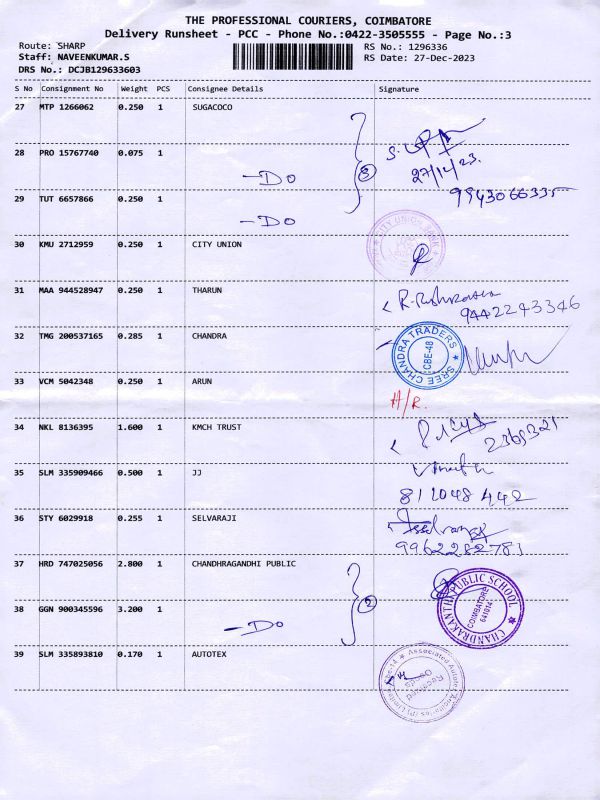 THE PROFESSIONAL COURIERS, COIMBATORE
Delivery Runsheet - PCC - Phone No.:0422-3505555 - Page No.:3
Route: SHARP
RS No.: 1296336
Staff: NAVEENKUMAR.S
RS Date: 27-Dec-2023
DRS No.: DCJB129633603
S No Consignment No Weight PCS Consignee Details Signature
27 MTP 1266062 0.250 1 SUGACOCO
28 PRO 15767740 0.075 1
-Do
3
27/12/23.
9943066335
29 TUT 6657866 0.250 1
-Do
30 KMU 2712959 0.250 1 CITY UNION
CITY UNION BANK
31 MAA 944528947 0.250 1 THARUN
9442243346
32 TMG 200537165 0.285 1 CHANDRA
SREE CHANDRA TRADERS
CBE-48
33 VCM 5042348 0.250 1 ARUN
H/R.
34 NKL 8136395 1.600 1 KMCH TRUST
2369321
35 SLM 335909466 0.500 1 JJ
811048 442
36 STY 6029918 0.255 1 SELVARAJI
9962282783
37 HRD 747025056 2.800 1 CHANDHRAGANDHI PUBLIC
CHANDRAKANTHI PUBLIC SCHOOL
COIMBATORE
641014
38 GGN 900345596 3.200 1
-Do
2
39 SLM 335893810 0.170 1 AUTOTEX
Associated Autotex Ancillaries (P) Limited
Received
Goods